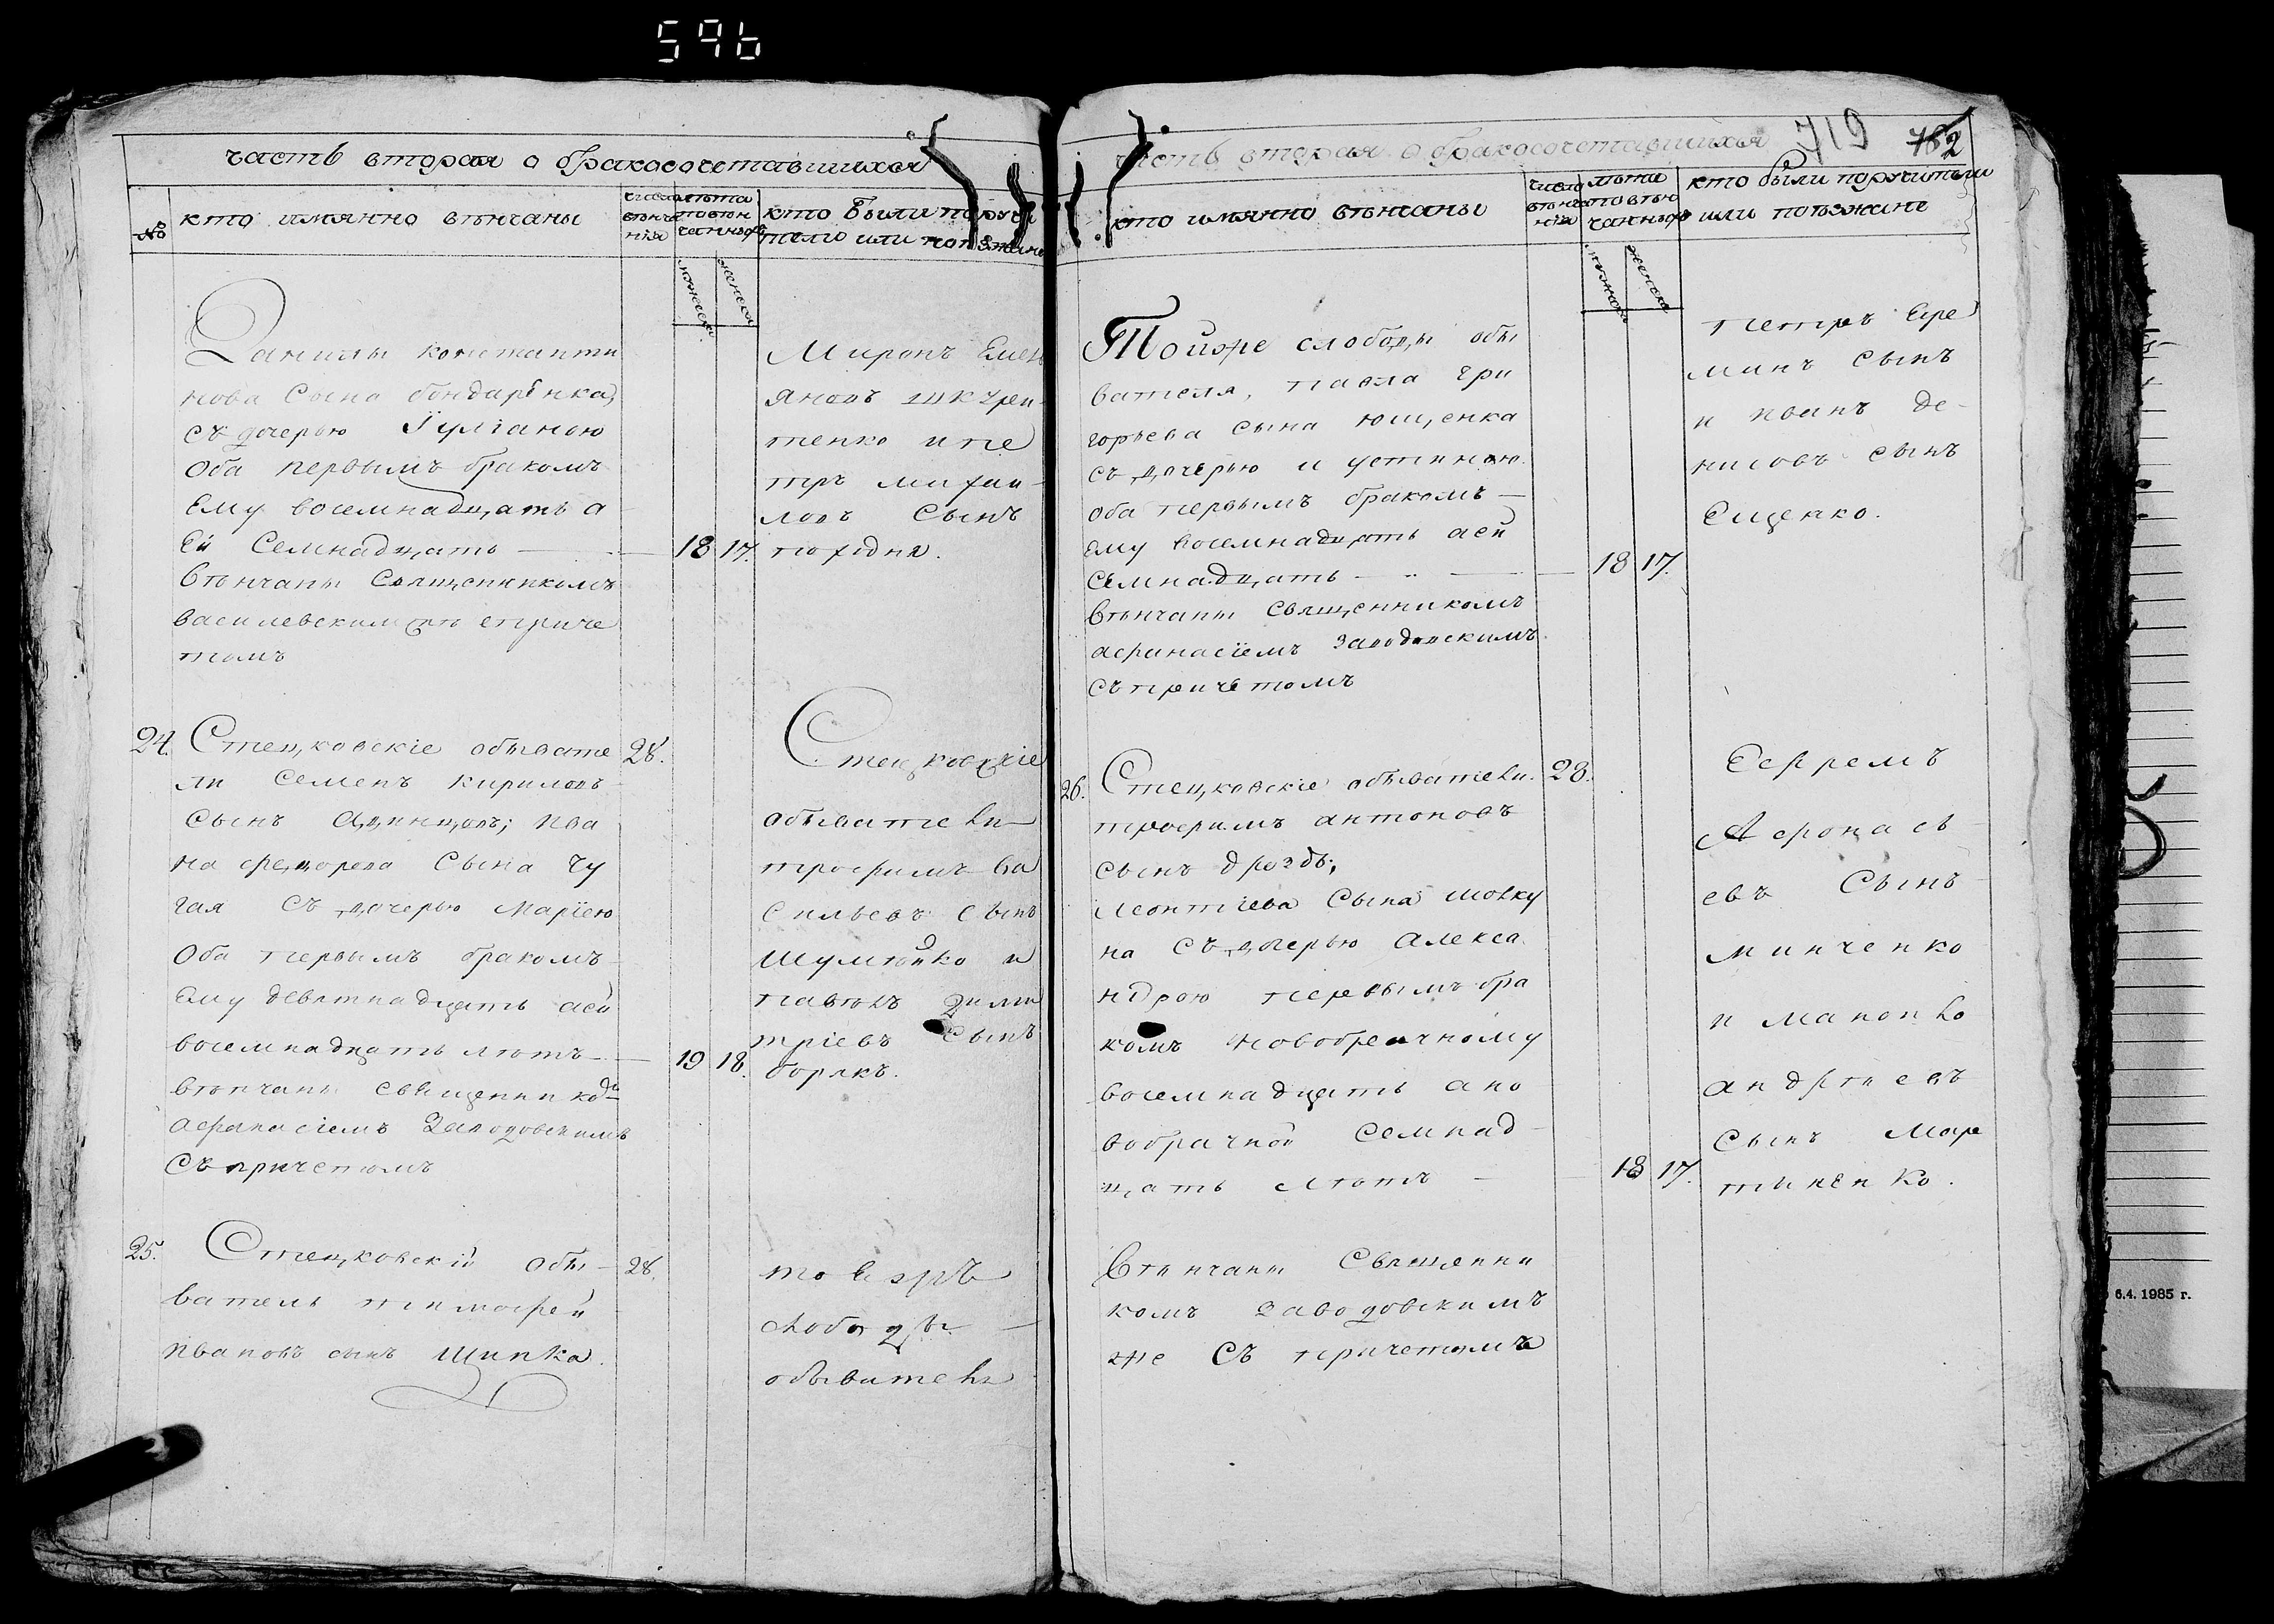 596
часть вторая о бракосочетавшихся
№
кто имянно вѣнчаны
числа
вѣнча
нїя
лѣта
повѣн
чанныхъ
кто были поручи
тели или
мужеска
женска
Данилы константи
нова сына бондарѣнка,
съ дочерью Іулїаною
оба первымъ бракомъ
ему восемнадцать а
ей семнадцать
18 17.
вѣнчаны священникомъ
василевскимъ спричѣ
томъ
Миронъ Емел
яновъ
тенко ипе
тръ михаи
ловъ сынъ
походня.
24. Стецковскїе обывате
28.
ли семенъ кириловъ
сынъ ; ива
на федорова сына чу
гая съ дочерью марїею
оба первымъ бракомъ
ему девятнадцать аей
восемнадцать лѣтъ
19 18.
вѣнчаны священнико
афанасїемъ Заводовскимъ
съ причетомъ
Стецковскїе
обыватели
трофимъ ва
сильевъ сынъ
Шумѣйко и
павелъ дими
трїевъ сынъ
борякъ.
25. Стецковскїй обы
28.
ватель тимофей
ивановъ сынъ Щипка.
тоеяжъ
слободы
обыватели
719 782
часть вторая о бракосочетавшихся
кто имянно вѣнчаны
числа
вѣнча
нїя
лѣта
повѣн
чанныхъ
кто были поручители
или поѣзжане
мужеска
женска
Тойже слободы обы
вателя, павла гри
горьева сына ющенка
съ дочерью иустиною
оба первымъ бракомъ
ему восемнадцать аей
семнадцать
18 17.
вѣнчаны священникомъ
афанасїемъ Заводовскимъ
съ причетомъ
петръ Ере
минъ сынъ
и иванъ де
нисовъ сынъ
Ещенко.
26. Стецковскїе обыватели.
28.
трофимъ антоновъ
сынъ дроздъ;
леонтїева сына шовку
на съ дочерью алекса
ндрою первымъ бра
комъ новобрачному
восемнадцать ано
вобрачной семнад
цать лѣтъ
18 17.
вѣнчаны священни
комъ заводовскимъ
же съ причетомъ
Ефремъ
Афонась
евъ сынъ
минченко
и
андрѣевъ
сынъ мар
тиненко.
6.4. 1985 г.